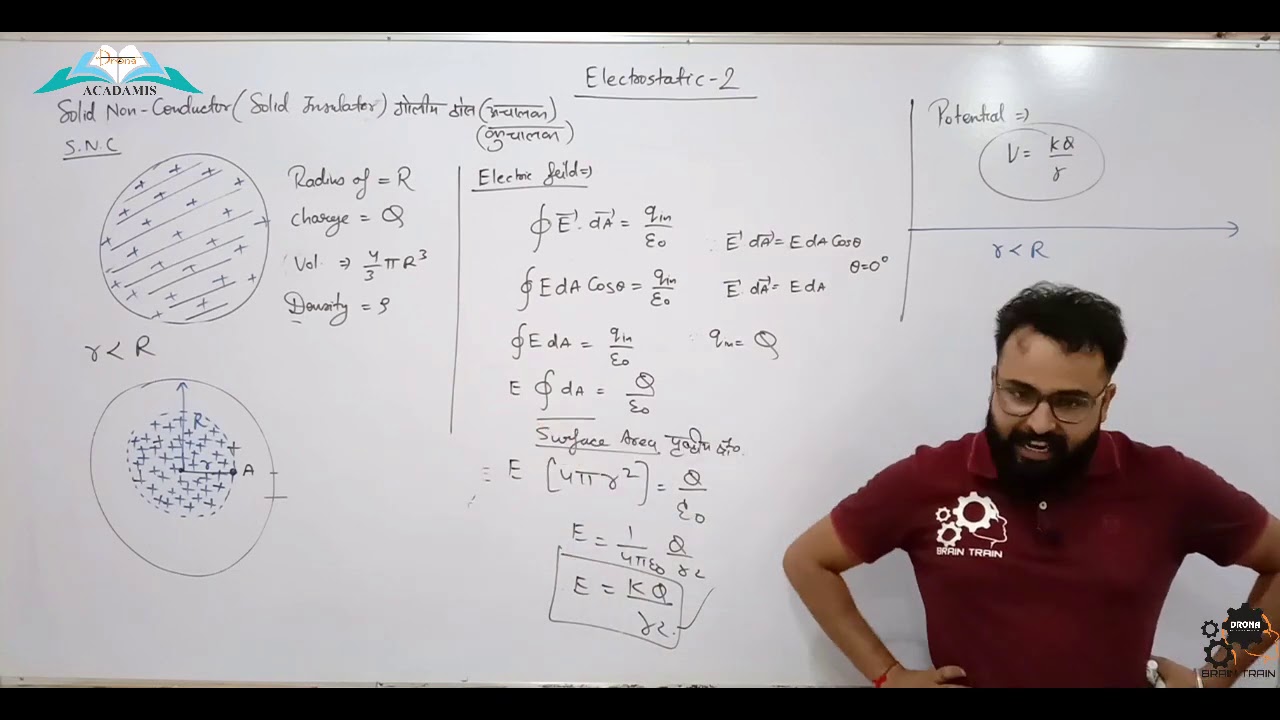 Drona
ACADAMIS
Electrostatic-2
Solid Non-Conductor (Solid Insulator) गोलीय ठोस (अचालक)
(कुचालक)
S.N.C
Radius of = R
Charge = Q
Vol ⇒ 4/3 πR³
Density = ρ
r < R
R
r
A
Electric feild ⇒
∮ E⃗ . dA⃗ = qin/ε0
∵ E⃗ dA⃗ = E dA Cosθ
θ=0°
∮ E dA Cosθ = qin/ε0
E⃗ dA⃗ = E dA
∮ E dA = qin/ε0
∵ qin = Q
E ∮ dA = Q/ε0
Surface Area पृष्ठीय क्षे०.
E [4πr²] = Q/ε0
E = 1/4πε0 Q/r2
E = KQ/r2.
Potential ⇒
V = KQ/r
r < R
BRAIN TRAIN
DRONA
BRAIN TRAIN